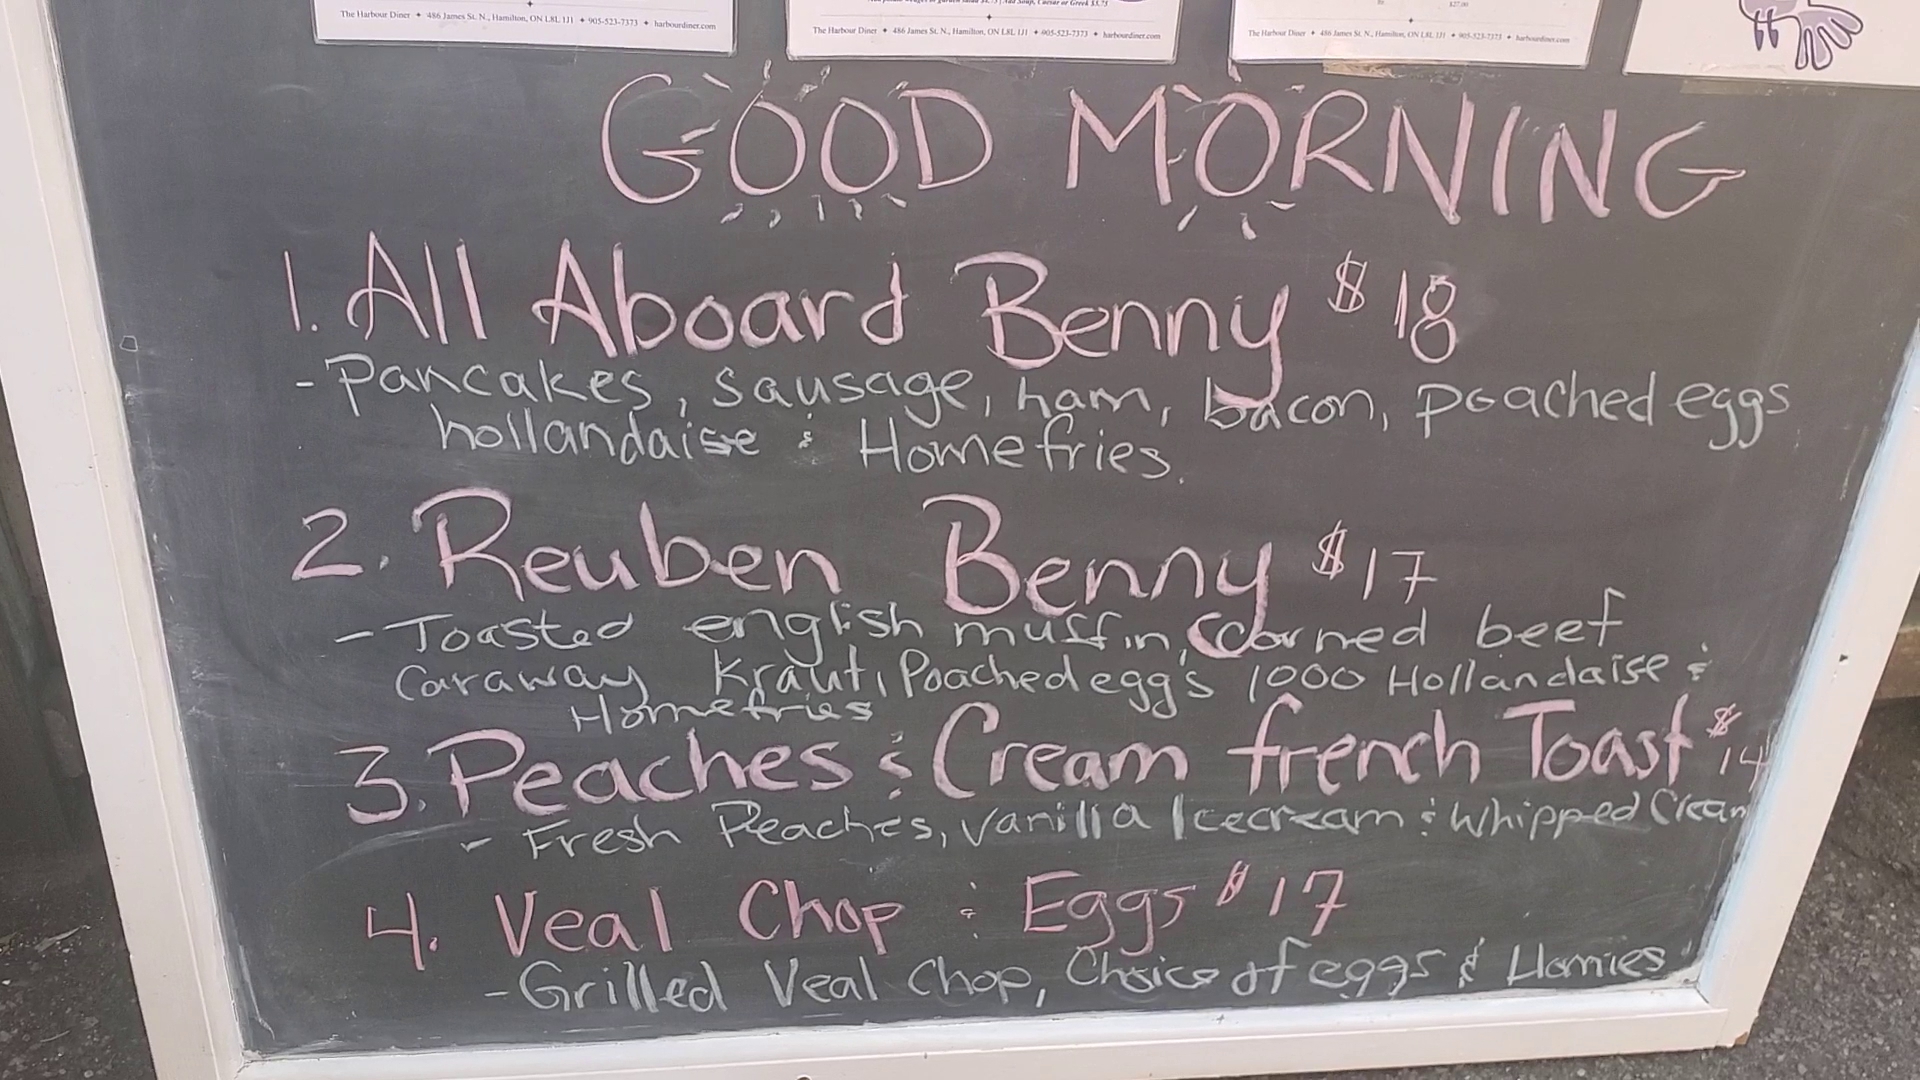 The Harbour Diner ✦ 486 James St. N., Hamilton, ON L8L 1J1 ✦ 905-523-7373 ✦ harbourdiner.com
The Harbour Diner ✦ 486 James St. N., Hamilton, ON L8L 1J1 ✦ 905-523-7373 ✦ harbourdiner.com
$27.00
The Harbour Diner ✦ 486 James St. N., Hamilton, ON L8L 1J1 ✦ 905-523-7373 ✦ harbourdiner.com
GOOD MORNING
1. All Aboard Benny $18
- Pancakes, sausage, ham, bacon, poached eggs
hollandaise & Homefries.
2. Reuben Benny $17
- Toasted english muffin, Corned beef
Caraway Kraut, Poached eggs 1000 Hollandaise &
Homefries
3. Peaches & Cream french Toast $14
- Fresh Peaches, Vanilla Icecream & Whipped Cream
4. Veal Chop & Eggs $17
- Grilled Veal Chop, Choice of eggs & Homies